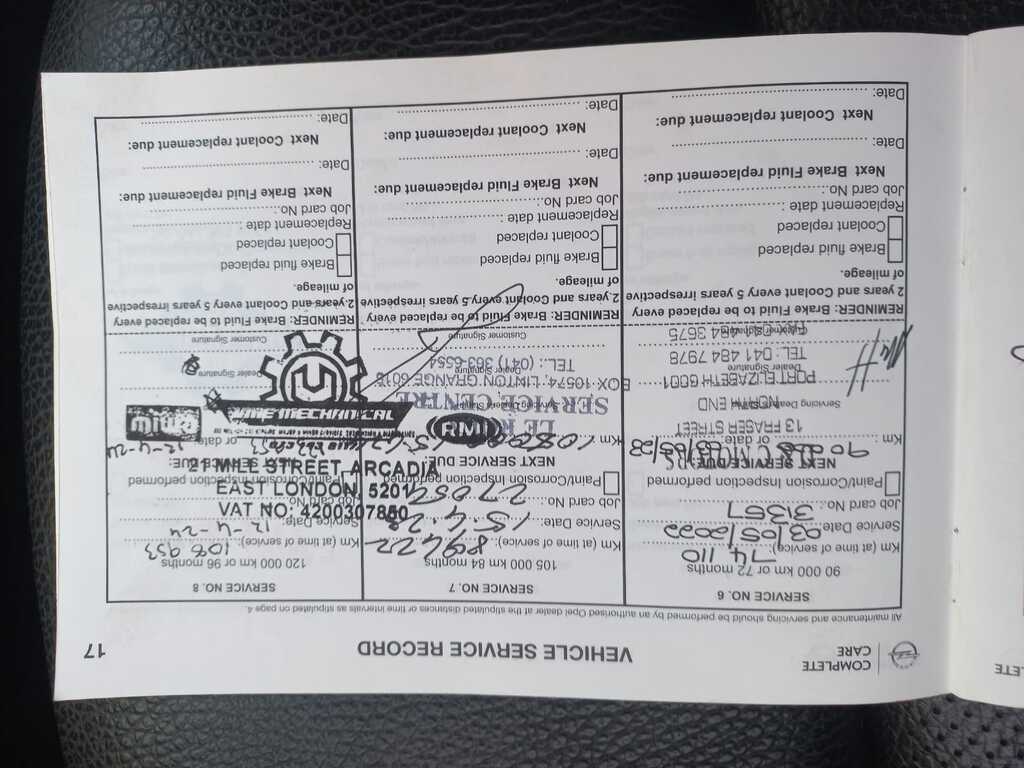 COMPLETE
CARE
VEHICLE SERVICE RECORD
17
All maintenance and servicing should be performed by an authorised Opel dealer at the stipulated distances or time intervals as stipulated on page 4.
SERVICE NO. 6
90 000 km or 72 months
Km (at time of service): 74 110
Service Date: 03/05/2022
Job card No.: 31367
Paint/Corrosion Inspection performed
NEXT SERVICE DUE
Km : or date of
13 FRASER STREET
NORTH END
Servicing Dealer
PORT ELIZABETH 6001
Dealer Signature
TEL: 041 484 7978
Customer Signature
REMINDER: Brake Fluid to be replaced every
2 years and Coolant every 5 years irrespective
of mileage.
Brake fluid replaced
Coolant replaced
Replacement date :
Job card No.:
Next Brake Fluid replacement due:
Date:
Next Coolant replacement due:
Date:
SERVICE NO. 7
105 000 km 84 months
Km (at time of service): 89422
Service Date: 15.4.23
Job card No.:
Paint/Corrosion Inspection performed
NEXT SERVICE DUE
Km
RMI
SERVICE CENTRE
BOX 10574, LINTON GRANGE 6015
TEL.: (041) 363-6354
Customer Signature
REMINDER: Brake Fluid to be replaced every
2 years and Coolant every 5 years irrespective
of mileage.
Brake fluid replaced
Coolant replaced
Replacement date :
Job card No.:
Next Brake Fluid replacement due:
Date:
Next Coolant replacement due:
Date:
SERVICE NO. 8
120 000 km or 96 months
Km (at time of service): 108 953
Service Date: 12-4-24
Job card No.
Paint/Corrosion Inspection performed
NEXT SERVICE DUE:
or date of 12-4-24
miwa
MECHANICAL
21 MILL STREET, ARCADIA
EAST LONDON, 5201
VAT NO: 4200307850
Dealer Signature
Customer Signature
REMINDER: Brake Fluid to be replaced every
2 years and Coolant every 5 years irrespective
of mileage.
Brake fluid replaced
Coolant replaced
Replacement date :
Job card No.:
Next Brake Fluid replacement due:
Date:
Next Coolant replacement due:
Date: